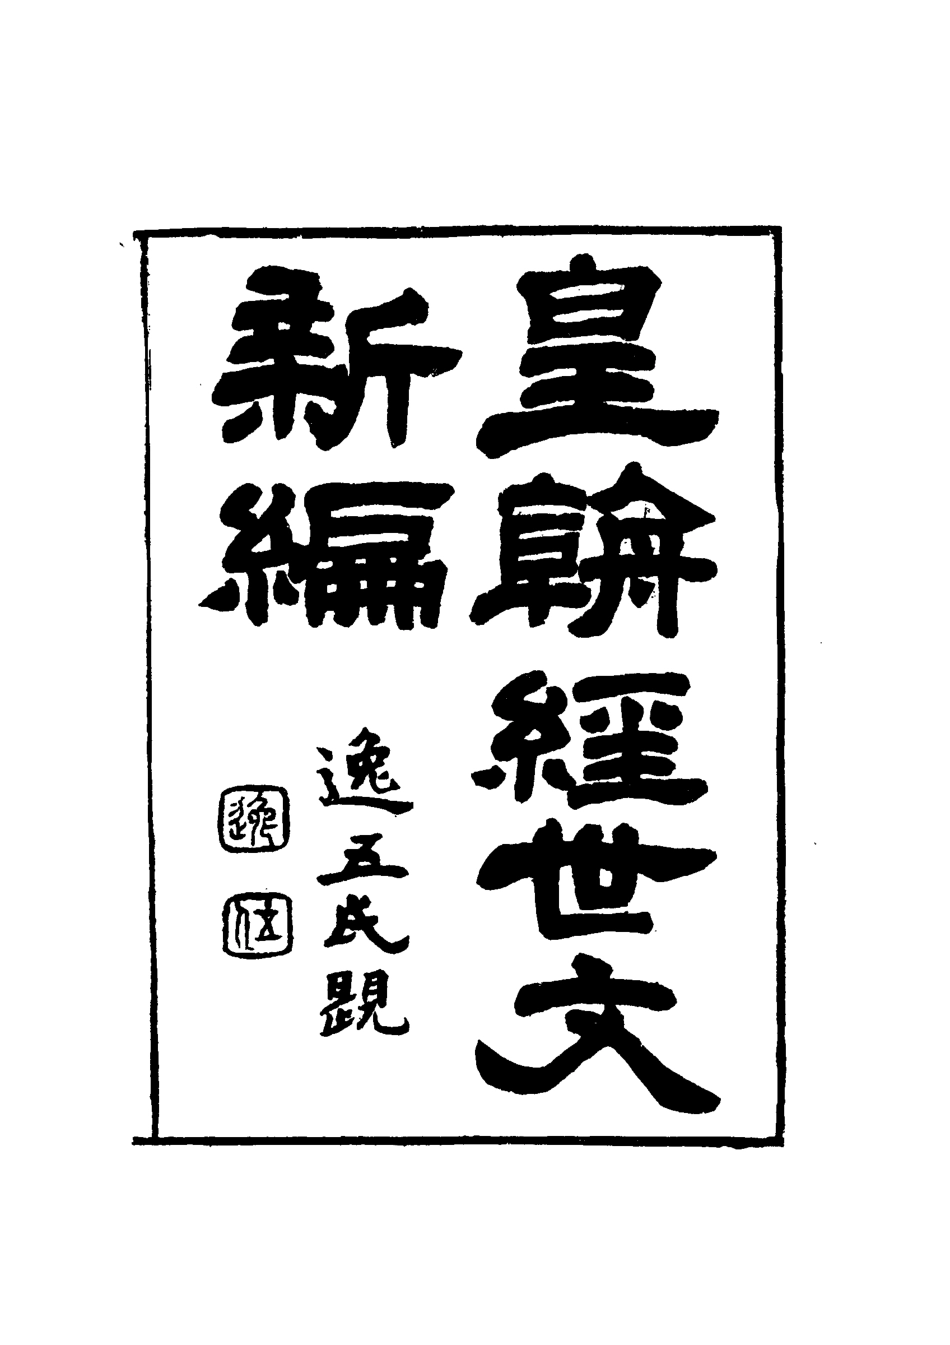 皇朝經世文
新編
逸五氏題
逸
伍